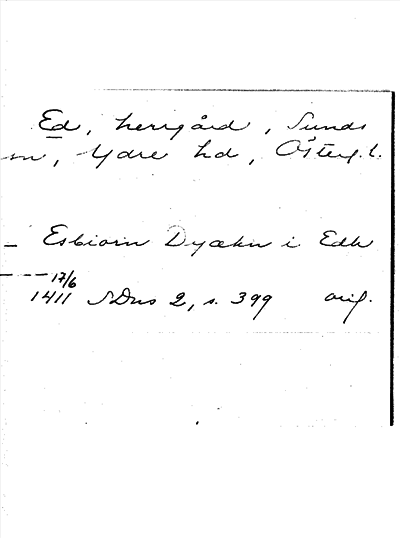 Ed, herrgård, Sunds
sn, Ydre hd, Österg. l.
Esbiorn Dyækn i Edh
17/6
1411 SDns 2, s. 399 orig.